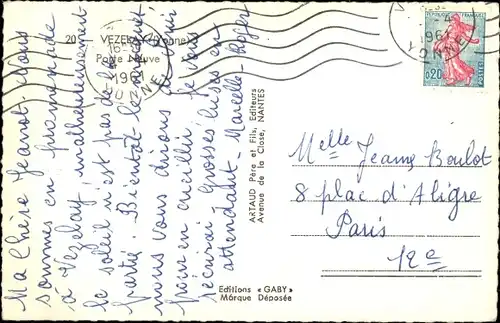 20 VEZELAY (Yonne)
Porte Neuve
Ma Chère Jeannot, nous
sommes en promenade
à Vezelay malheureusement
le soleil n'est pas de la
partie. Bientôt le
nous dirons de venir
pour en cueillir je vous
Grosses bises en
attendant. Marcelle. Roger
ARTAUD Père et Fils, Editeurs
Avenue de la Close, NANTES
Editions « GABY »
Marque Déposée
YONNE
REPUBLIQUE FRANÇAISE
0,20
POSTES
YONNE
Melle Jeanne Boulot
8 plac d'Aligre
Paris
12e